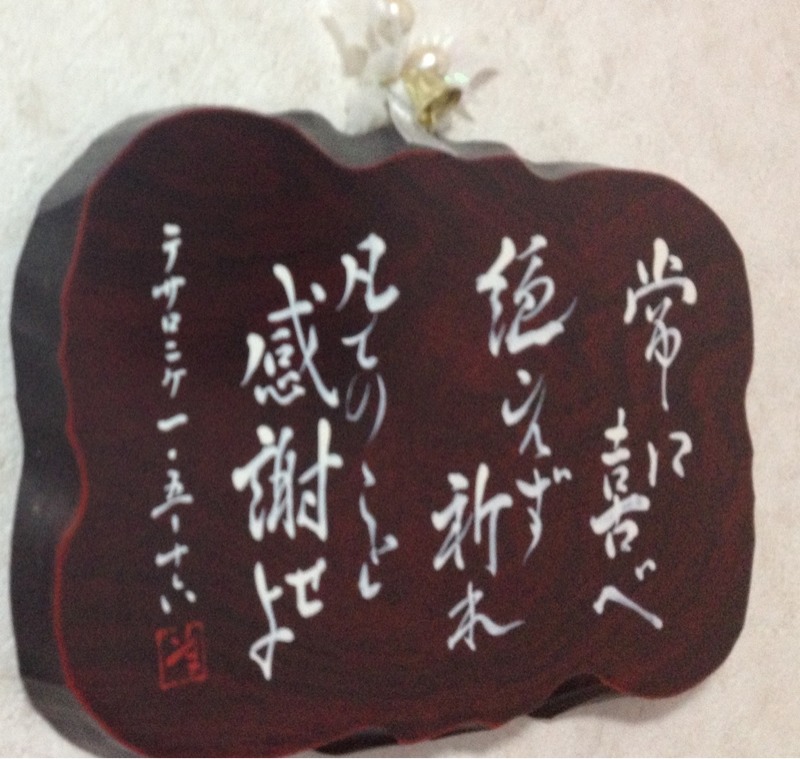 常に
喜べ
絶えず
祈れ
凡てのこと
感謝せよ
テサロニケ一・五ー十六